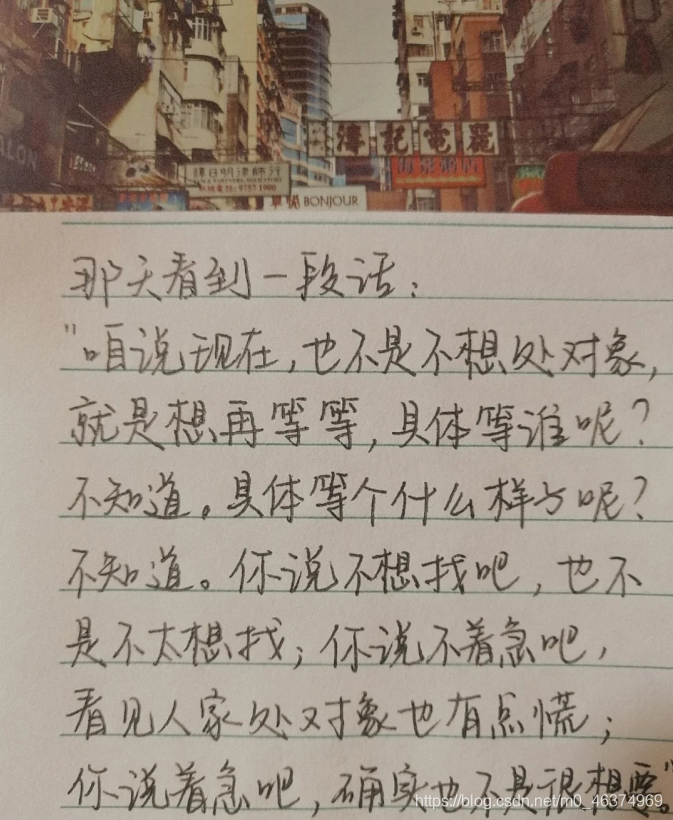 溥記電器
譚日明律師行
卓悅 BONJOUR
那天看到一段话：
"咱说现在，也不是不想处对象，
就是想再等等，具体等谁呢？
不知道。具体等个什么样子呢？
不知道。你说不想找吧，也不
是不太想找；你说不着急吧，
看见人家处对象也有点慌；
你说着急吧，确实也不是很想要"。
https://blog.csdn.net/m0_46374969